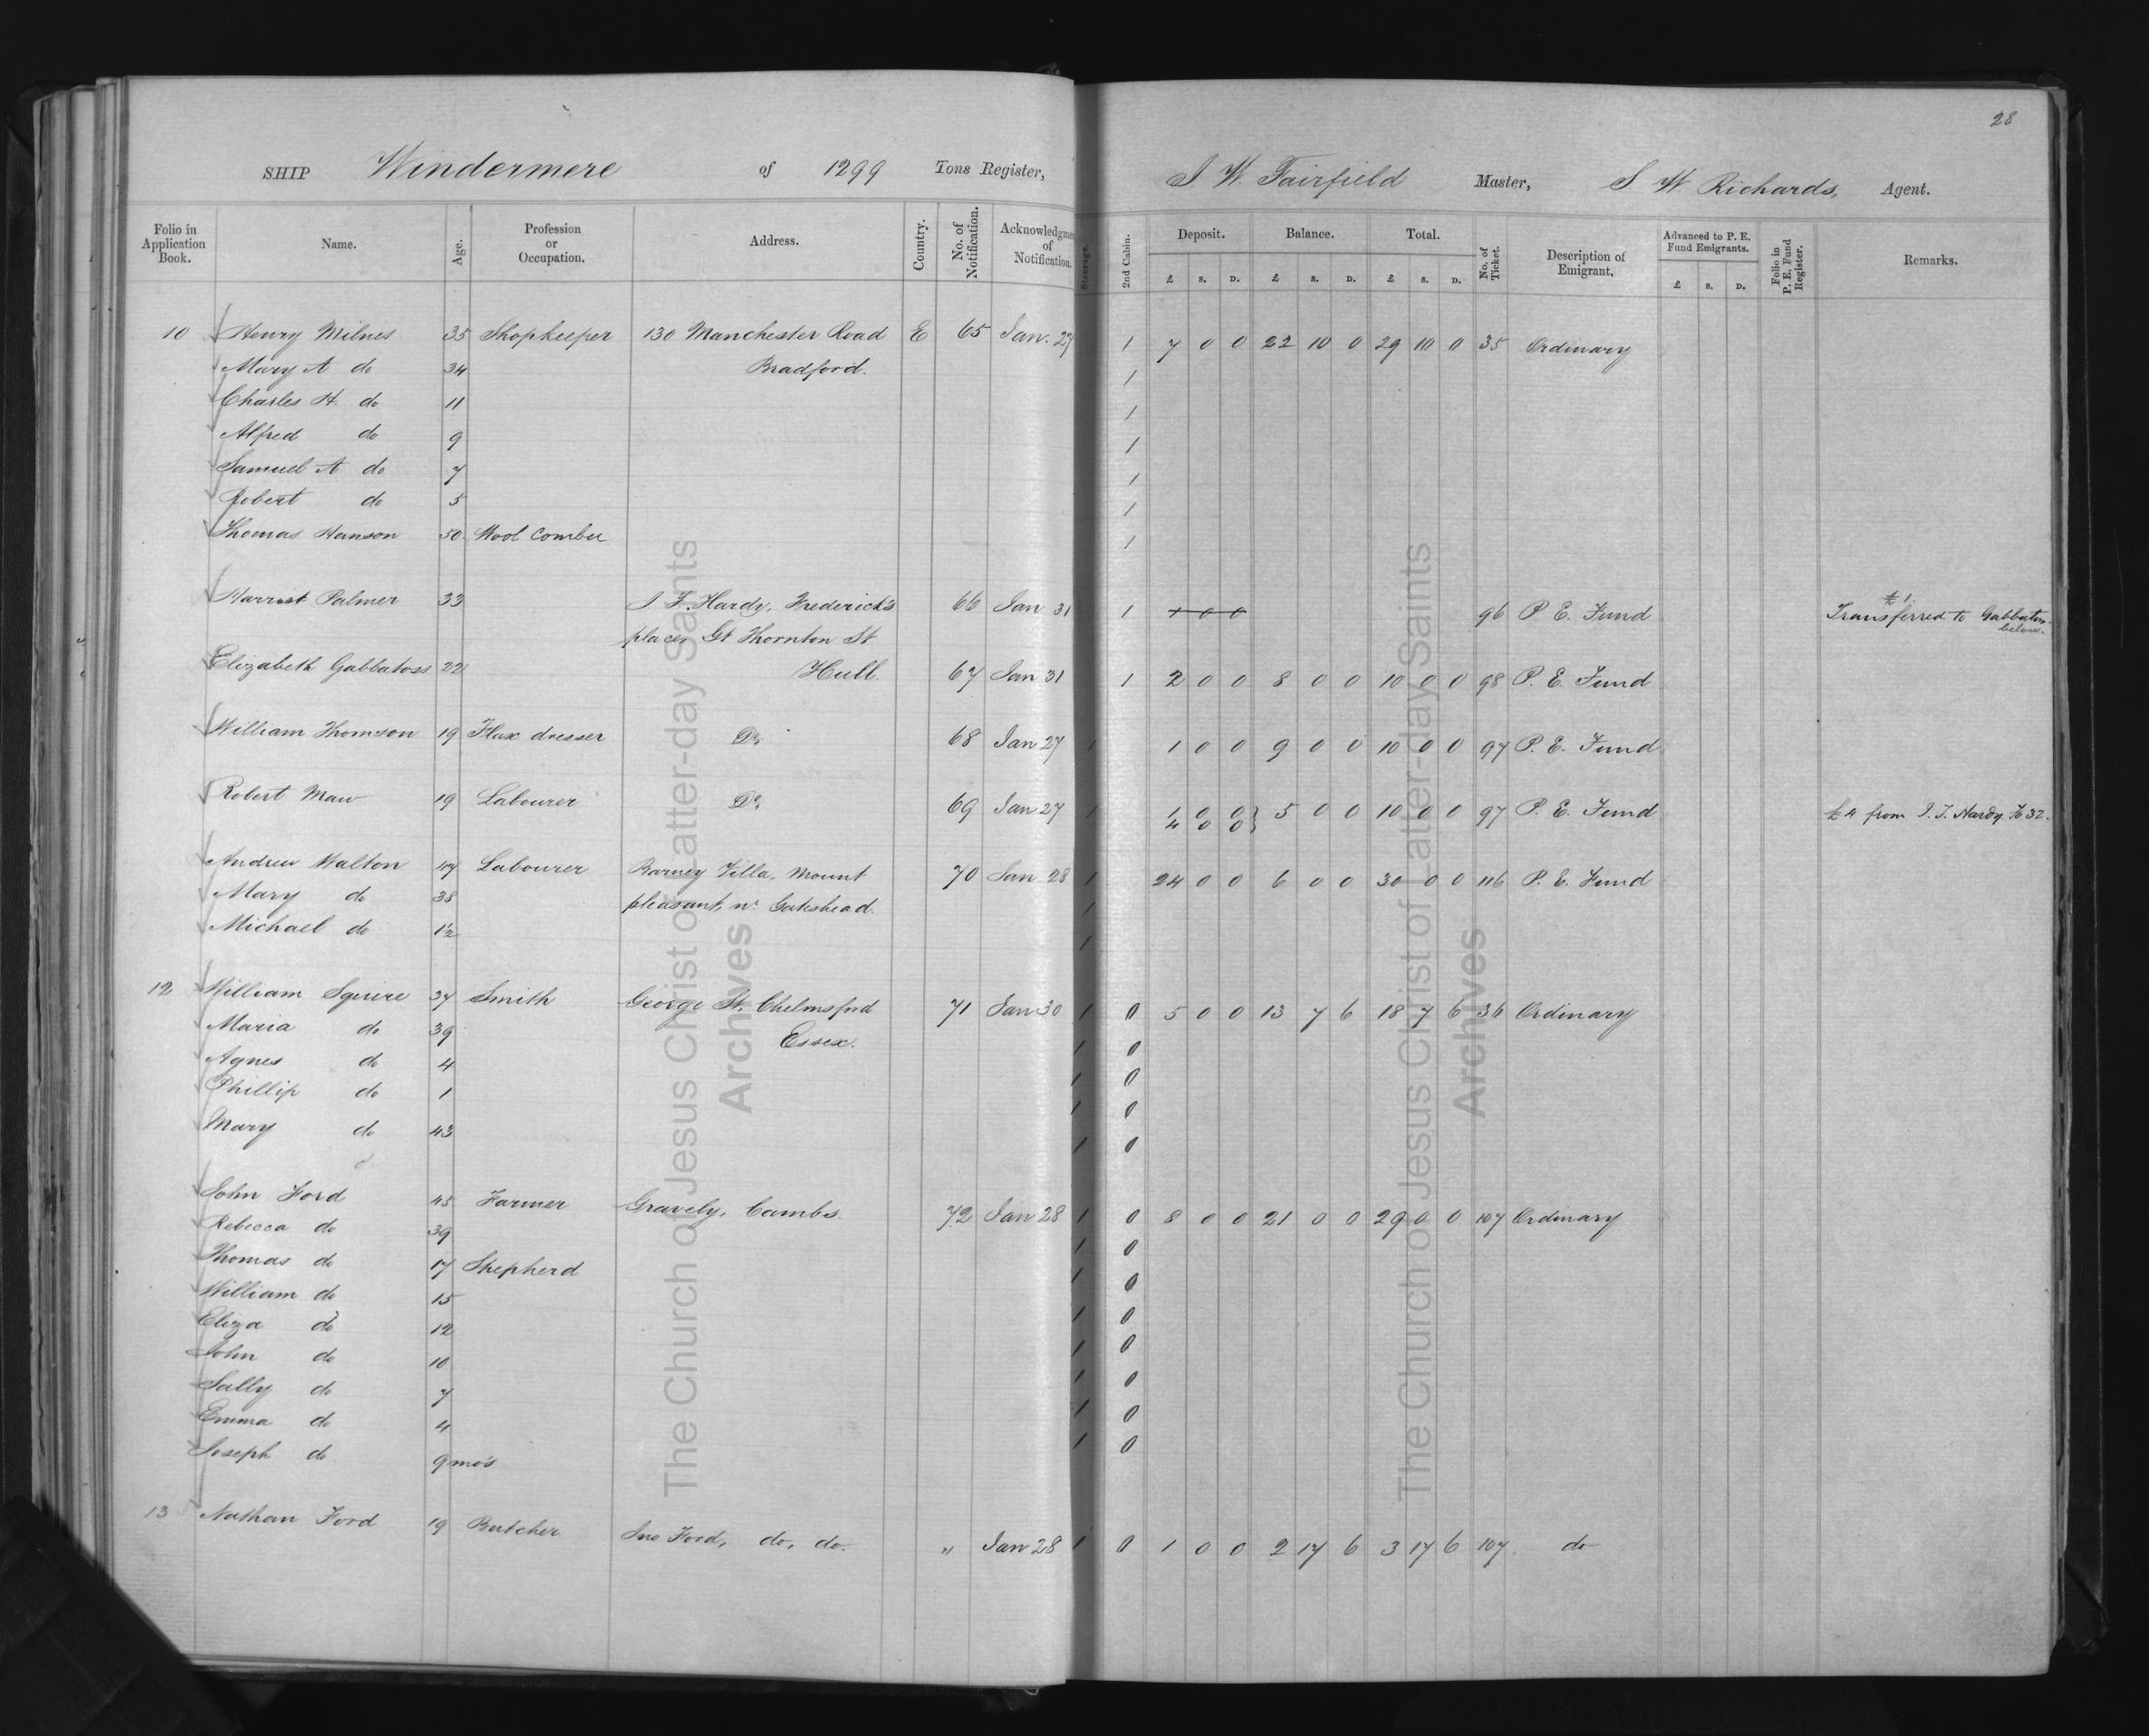 28
SHIP Windermere of 1299 Tons Register, J. W. Fairfield Master, S W Richards, Agent.
Folio in Application Book. Name. Age. Profession or Occupation. Address. Country. No. of Notification. Acknowledgme of Notification. Steerage. 2nd Cabin. Deposit. £ s. D. Balance. £ s. D. Total. £ s. D. No. of Ticket. Description of Emigrant, Advanced to P. E. Fund Emigrants. £ s. D. Folio in P. E. Fund Register. Remarks.
10 Henry Milnes 35 Shopkeeper 130 Manchester Road E 65 Jan. 27 1 7 0 0 22 10 0 29 10 0 35 Ordinary
Mary A do 34 Bradford. 1
Charles H do 11 1
Alfred do 9 1
Samuel A do 7 1
Robert do 5 1
Thomas Hanson 50 Wool Comber 1
Harriet Palmer 33 J. F. Hardy, Frederick's 66 Jan 31 1 1 0 0 96 P E. Fund £1. Transferred to Gabbatass below.
place, Gt Thornton St
Elizabeth Gabbatass 22 Hull. 67 Jan 31 1 2 0 0 8 0 0 10 0 0 98 P. E. Fund
William Thomson 19 Flax dresser Do. 68 Jan 27 1 1 0 0 9 0 0 10 0 0 97 P. E. Fund
Robert Maw 19 Labourer Do. 69 Jan 27 1 1 0 0 } 5 0 0 10 0 0 97 P. E. Fund £4 from J. F. Hardy. Fo 32.
4 0 0
Andrew Walton 47 Labourer Barney Villa, Mount 70 Jan 28 1 24 0 0 6 0 0 30 0 0 116 P. E. Fund
Mary do 38 pleasant, nr Gateshead. 1
Michael do 12 1
12 William Squire 37 Smith George St, Chelmsford 71 Jan 30 1 0 5 0 0 13 7 6 18 7 6 36 Ordinary
Maria do 39 Essex. 1 0
Agnes do 4 1 0
Phillip do 1 1 0
Mary do 43 1 0
John Ford 45 Farmer Gravely, Cambs. 72 Jan 28 1 0 8 0 0 21 0 0 29 0 0 107 Ordinary
Rebecca do 39 1 0
Thomas do 17 Shepherd 1 0
William do 15 1 0
Eliza do 12 1 0
John do 10 1 0
Sally do 7 1 0
Emma do 4 1 0
Joseph do 9 mos
13 Nathan Ford 19 Butcher Jno Ford, do, do. " Jan 28 1 0 1 0 0 2 17 6 3 17 6 107 do
The Church of Jesus Christ of Latter-day Saints
Archives
The Church of Jesus Christ of Latter-day Saints
Archives